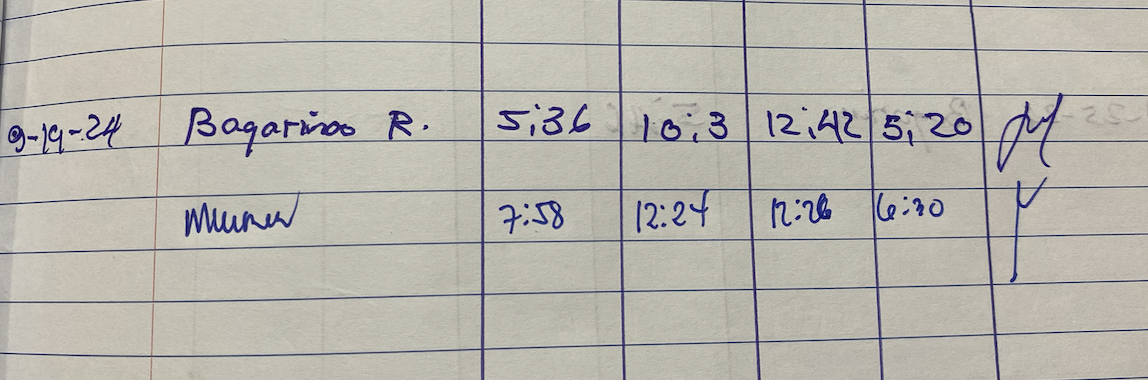 9-19-24 Bagarinoo R. 5;36 10;3 12;42 5;20
7:58 12:24 12:26 6:30